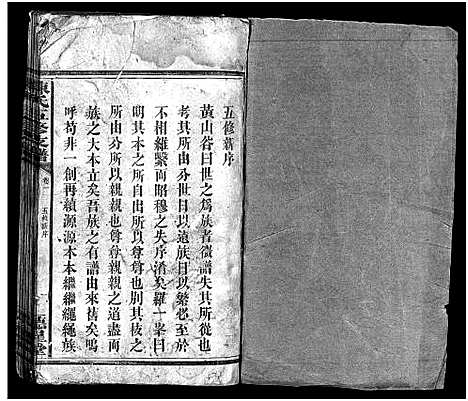 五修新序
黃山谷曰世之爲族者微譜失其所從也
考其所由分世日以遠族日以繁必至於
不相維繫而昭穆之失序淆矣羅一峯曰
明其本之所自出所以尊尊也別其枝之
所由分所以親親也尊尊親親之道盡而
族之大本立矣吾族之有譜由來舊矣嗚
呼苟非一創再續源源本本繼繼繩繩族
陳氏五修支譜
卷一
五修新序
一
德星堂